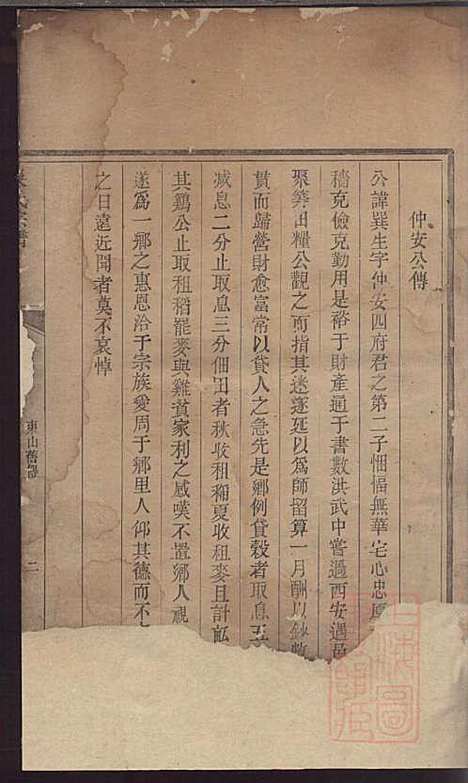 仲安公傳
公諱巽生字仲安四府君之第二子悃愊無華宅心忠厚
穡克儉克勤用是裕于財產通于書數洪武中嘗過西安遇邑
聚築田糧公觀之而指其迷遂延以為師留算一月酬以鈔數
貫而歸營財愈富常以貸人之急先是鄉例貸穀者取息五
减息二分止取息三分佃田者秋收租稻夏收租麥且計畝
其鷄公止取租稻罷麥與雞貧家利之感嘆不置鄉人視
遂爲一鄉之惠恩洽于宗族愛周于鄉里人仰其德而不
之日遠近聞者莫不哀悼
東山舊譜
二